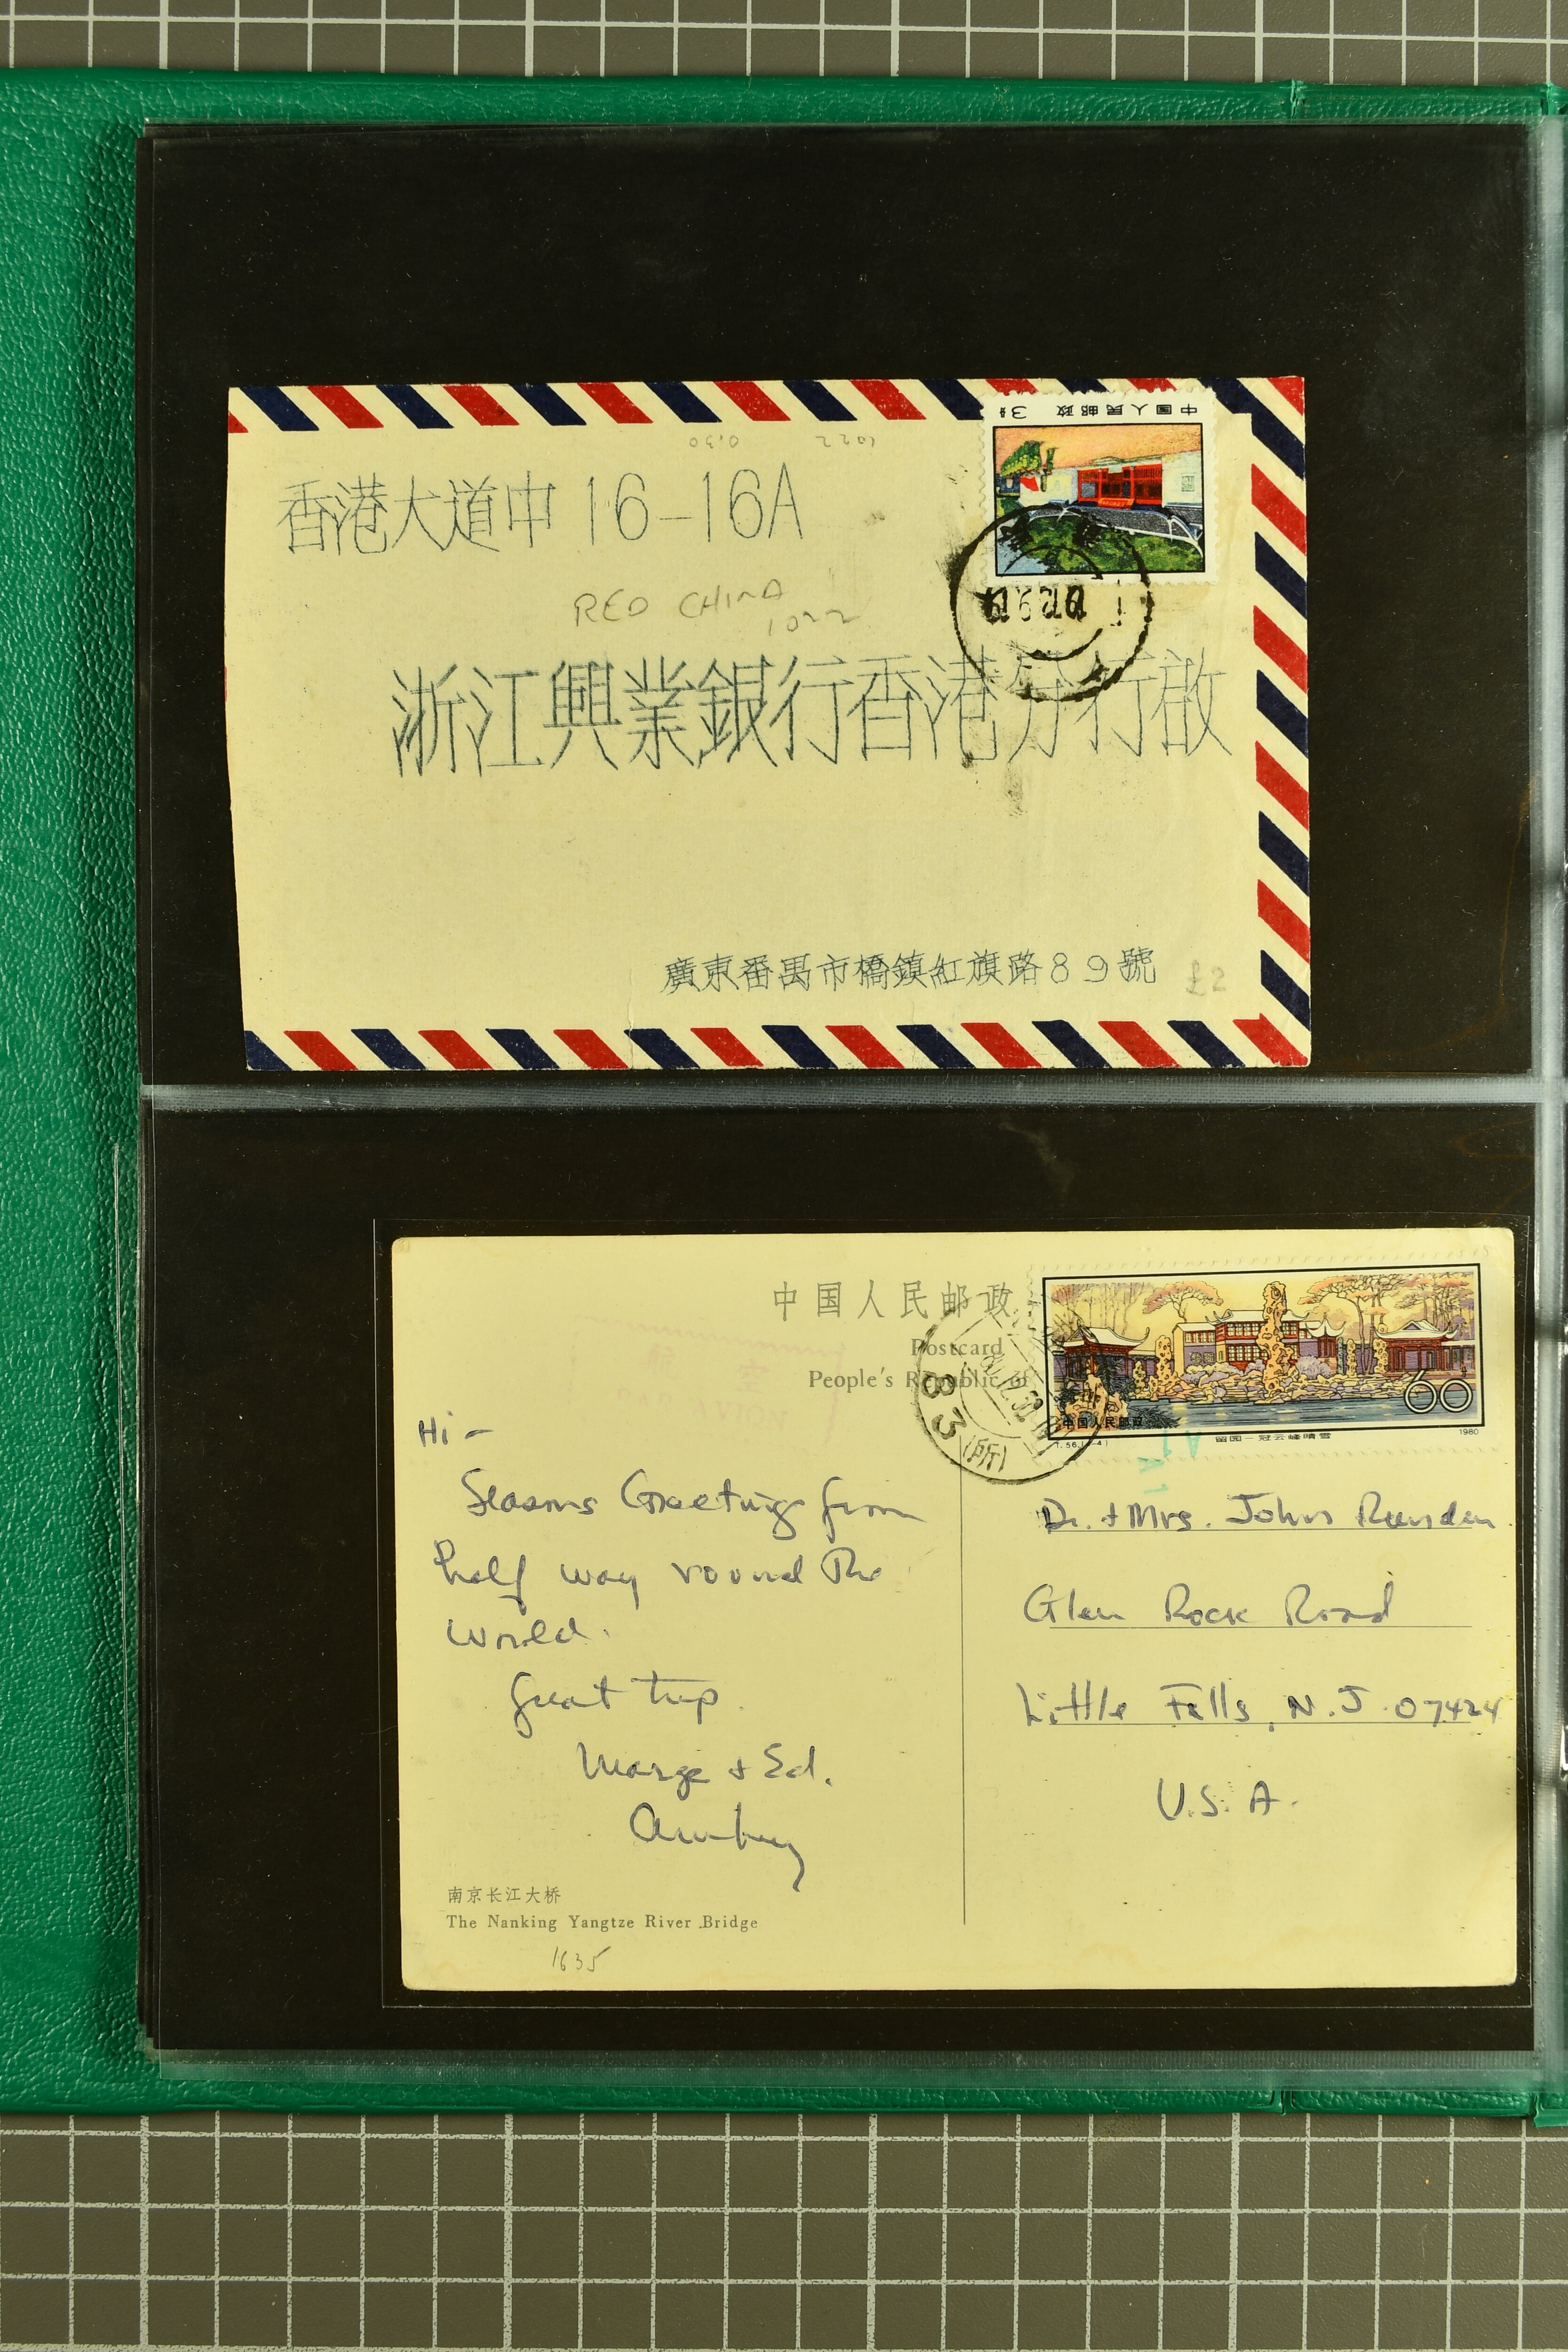 中国人民邮政
0.30 1022
香港大道中 16-16A
RED CHINA
1022
浙江興業銀行香港分行啟
廣東番禺市橋鎮紅旗路89號
£2
中国人民邮政
Postcard
People's Republic of
60
中国人民邮政
留园-冠云峰晴雪
1980
83
(所)
Hi -
Seasons Greetings from
half way round the
world.
Great trip.
Marge & Ed.
Dr. + Mrs. John
Glen Rock Road
Little Falls, N.J. 07424
U.S.A.
南京长江大桥
The Nanking Yangtze River Bridge
1635